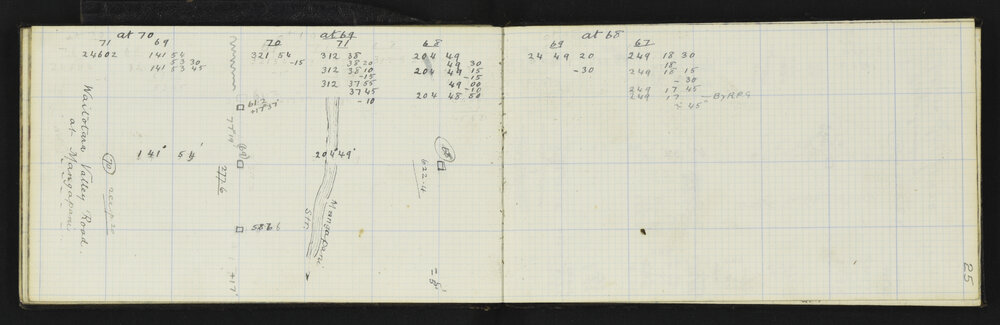 at 70 at 69 at 68
71 69 70 71 68 69 67
24602 141 54 321 54 312 38 204 49 24 49 20 249 18 30
53 30 -15 38 20 49 30 18
141 53 45 312 38 10 204 49 15 -30 249 18 15
-15 -15 -30
312 37 55 49 00 249 17 45
37 45 -10 249 17 By R.P.G
-10 204 48 50 45"
61.2
+17°37'
77°14'
69
68
141° 54' 204°49'
70
277.6
622.4
Waitotara Valley Road
at Mangapani
586.6
Mangapani
Str.
+17'
-8'
25